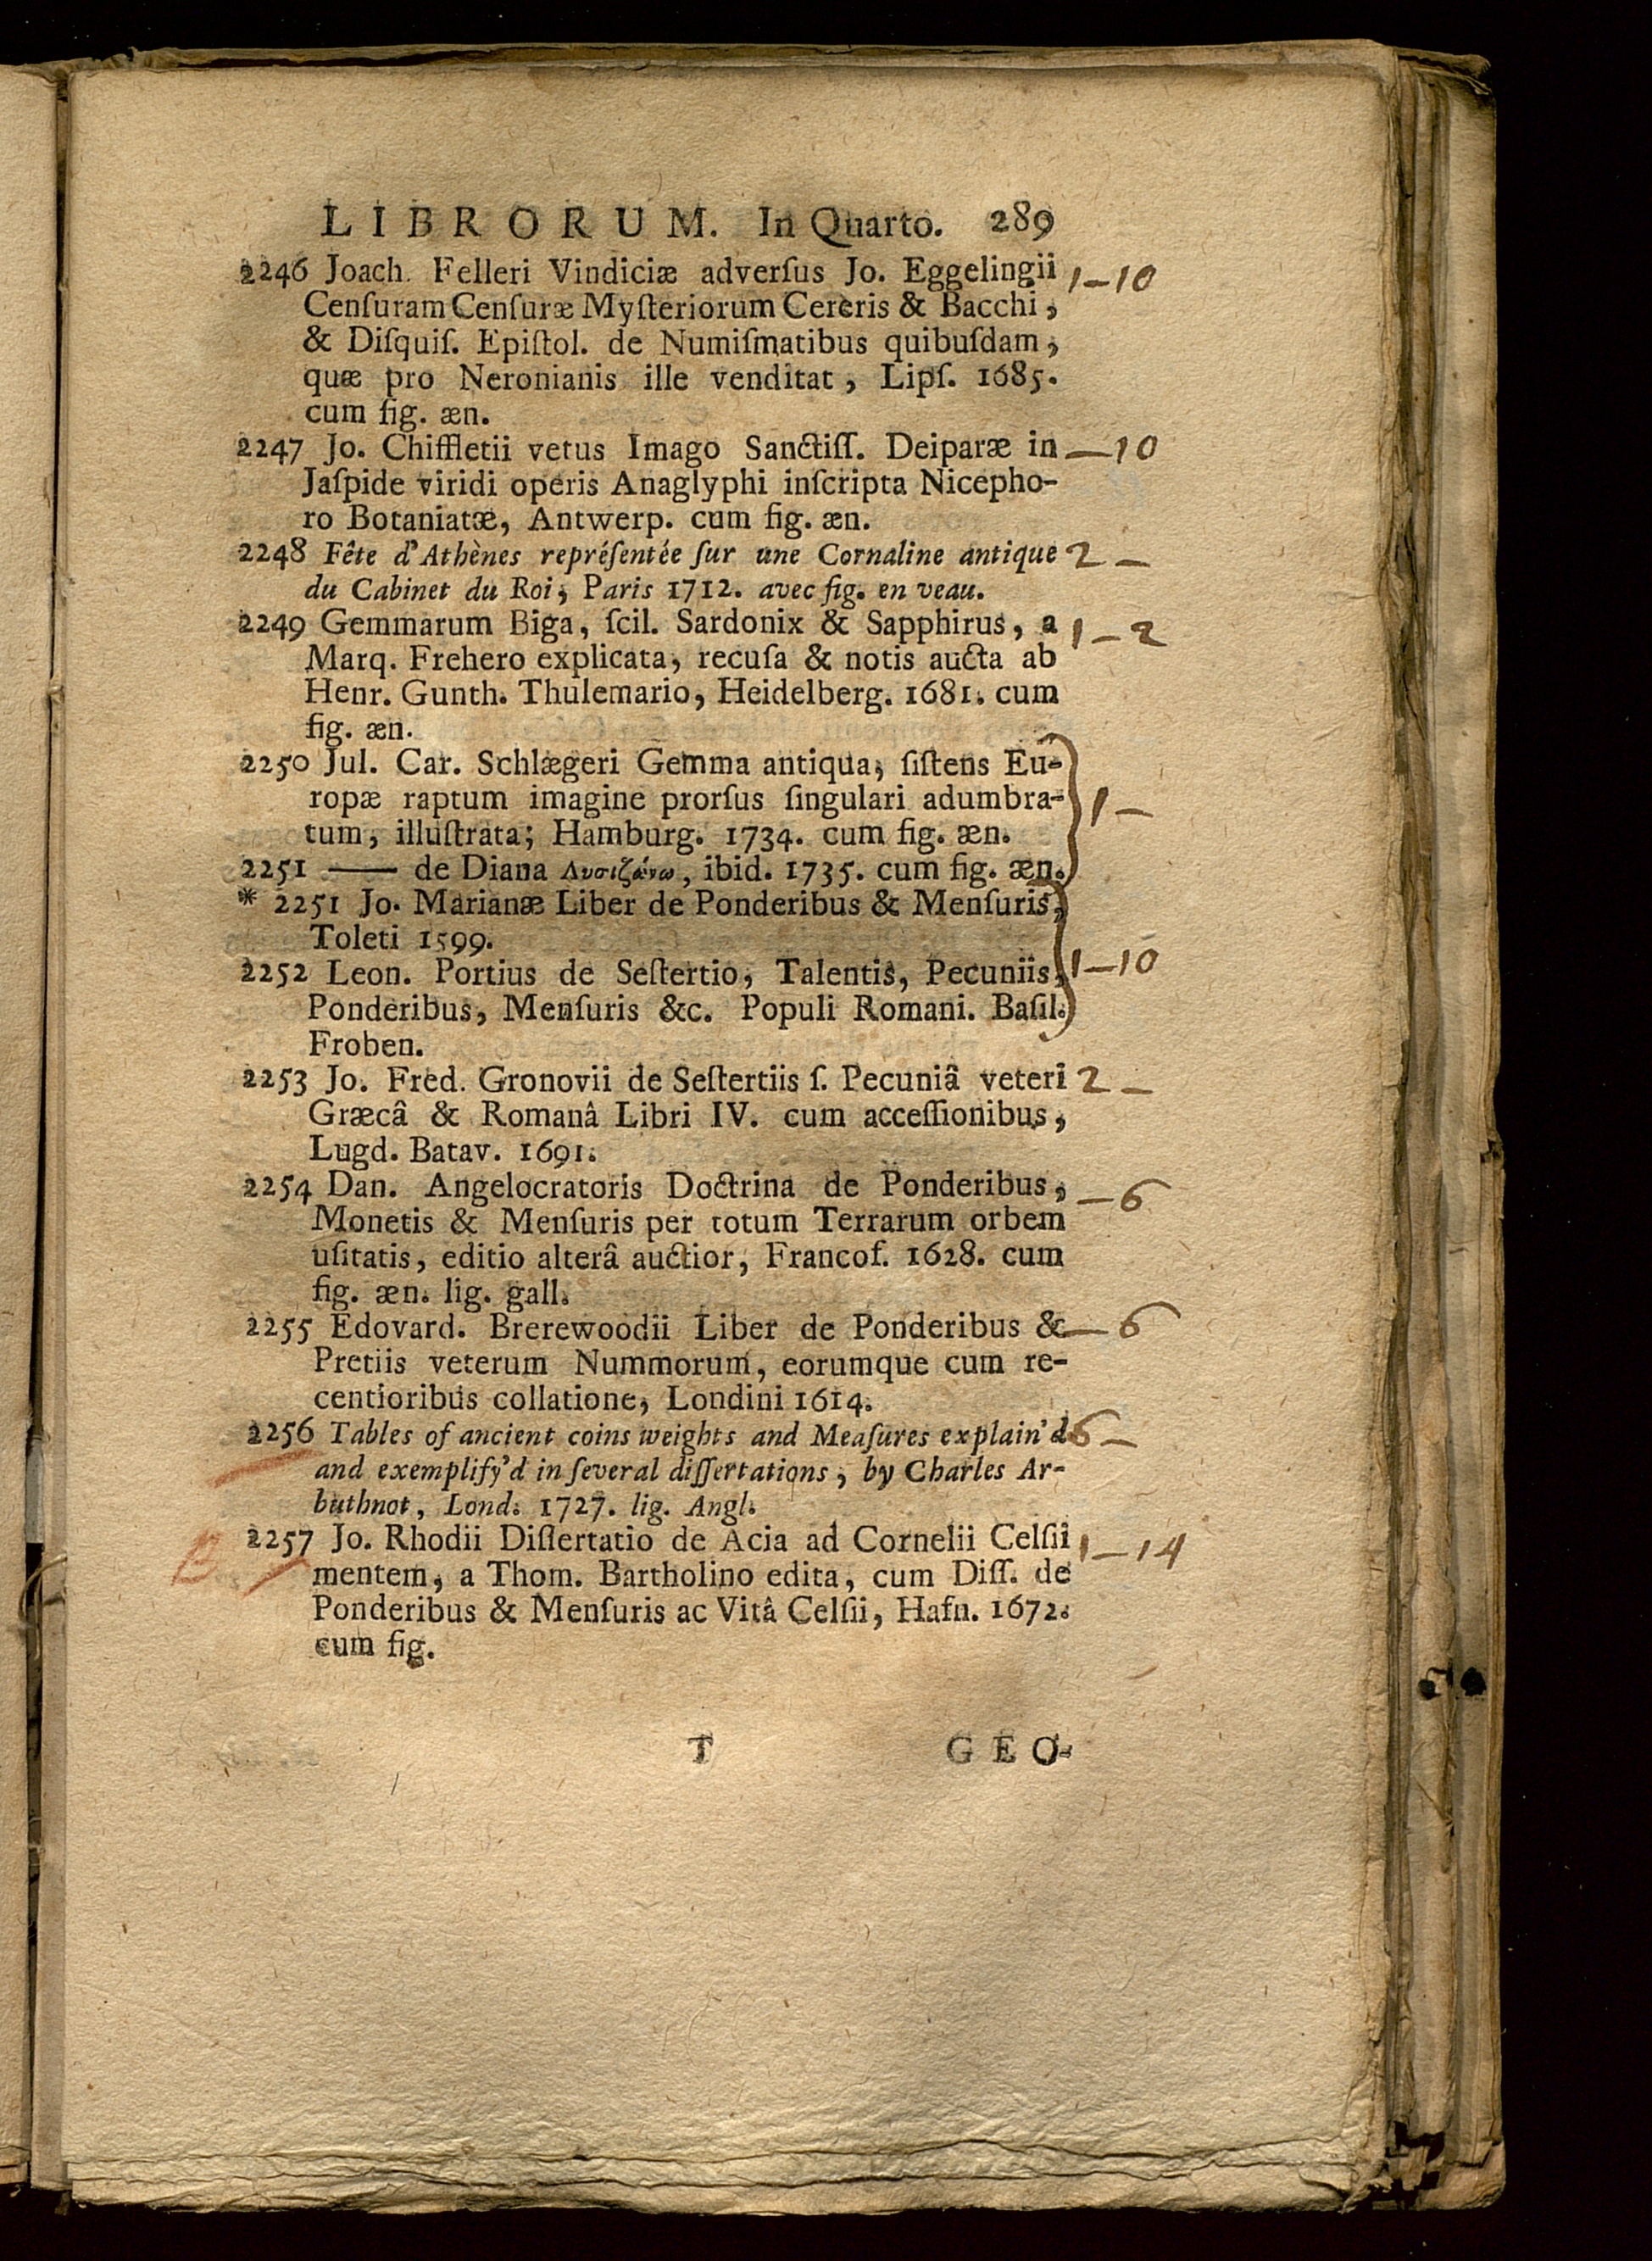 LIBRORUM. In Quarto. 289
2246 Joach. Felleri Vindiciæ adverſus Jo. Eggelingii 1—10
Cenſuram Cenſuræ Myſteriorum Cereris & Bacchi,
& Diſquiſ. Epiſtol. de Numiſmatibus quibuſdam,
quæ pro Neronianis ille venditat, Lipſ. 1685.
cum fig. æn.
2247 Jo. Chiffletii vetus Imago Sanctiſſ. Deiparæ in —10
Jaſpide viridi operis Anaglyphi inſcripta Nicepho-
ro Botaniatæ, Antwerp. cum fig. æn.
2248 Fête d'Athènes repréſentée ſur une Cornaline antique 2—
du Cabinet du Roi, Paris 1712. avec fig. en veau.
2249 Gemmarum Biga, ſcil. Sardonix & Sapphirus, a 1—2
Marq. Frehero explicata, recuſa & notis aucta ab
Henr. Gunth. Thulemario, Heidelberg. 1681. cum
fig. æn.
2250 Jul. Car. Schlægeri Gemma antiqua, ſiſtens Eu-
ropæ raptum imagine prorſus ſingulari adumbra- 1—
tum, illuſtrata; Hamburg. 1734. cum fig. æn.
2251 —— de Diana Λυσιζώνω, ibid. 1735. cum fig. æn.
* 2251 Jo. Marianæ Liber de Ponderibus & Menſuris,
Toleti 1599.
2252 Leon. Portius de Seſtertio, Talentis, Pecuniis, 1—10
Ponderibus, Menſuris &c. Populi Romani. Baſil.
Froben.
2253 Jo. Fred. Gronovii de Seſtertiis ſ. Pecuniâ veteri 2—
Græcâ & Romanâ Libri IV. cum acceſſionibus,
Lugd. Batav. 1691.
2254 Dan. Angelocratoris Doctrina de Ponderibus, —6
Monetis & Menſuris per totum Terrarum orbem
uſitatis, editio alterâ auctior, Francof. 1628. cum
fig. æn. lig. gall.
2255 Edovard. Brerewoodii Liber de Ponderibus & —6
Pretiis veterum Nummorum, eorumque cum re-
centioribus collatione, Londini 1614.
2256 Tables of ancient coins weights and Meaſures explain'd 6—
and exemplify'd in ſeveral diſſertations, by Charles Ar-
buthnot, Lond. 1727. lig. Angl.
B 2257 Jo. Rhodii Diſſertatio de Acia ad Cornelii Celſii 1—14
mentem, a Thom. Bartholino edita, cum Diſſ. de
Ponderibus & Menſuris ac Vitâ Celſii, Hafn. 1672.
cum fig.
T GEO-